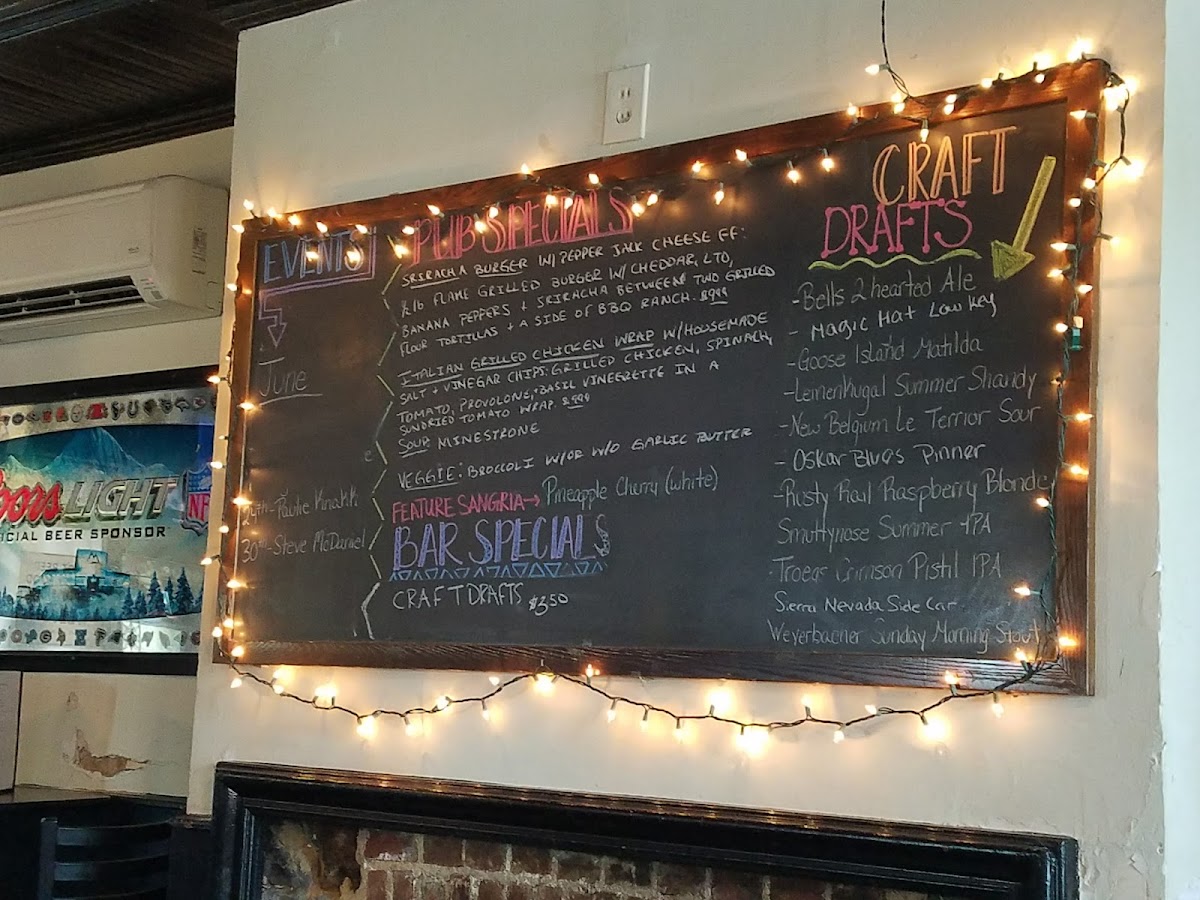 EVENTS
June
24th-Paulie Knakk
30th-Steve McDaniel
PUB SPECIALS
SRIRACHA BURGER W/ PEPPER JACK CHEESE FF:
½ lb FLAME GRILLED BURGER W/ CHEDDAR, LTO,
BANANA PEPPERS + SRIRACHA BETWEEN TWO GRILLED
FLOUR TORTILLAS + A SIDE OF BBQ RANCH. 8.99
ITALIAN GRILLED CHICKEN WRAP W/HOUSEMADE
SALT + VINEGAR CHIPS: GRILLED CHICKEN, SPINACH,
TOMATO, PROVOLONE, + BASIL VINEGRETTE IN A
SUNDRIED TOMATO WRAP. 8.99
SOUP MINESTRONE
VEGGIE: BROCCOLI W/OR W/O GARLIC BUTTER
FEATURE SANGRIA→ Pineapple Cherry (white)
BAR SPECIALS
CRAFT DRAFTS $3.50
CRAFT
DRAFTS
-Bells 2 hearted Ale
- Magic Hat Low Key
-Goose Island Matilda
-Leinenkugal Summer Shandy
-New Belgium Le Terrior Sour
- Oskar Blues Pinner
-Rusty Rail Raspberry Blonde
Smuttynose Summer IPA
Troegs Crimson Pistil IPA
Sierra Nevada Side Car
Weyerbacher Sunday Morning Stout
Coors LIGHT
NFL
ICIAL BEER SPONSOR